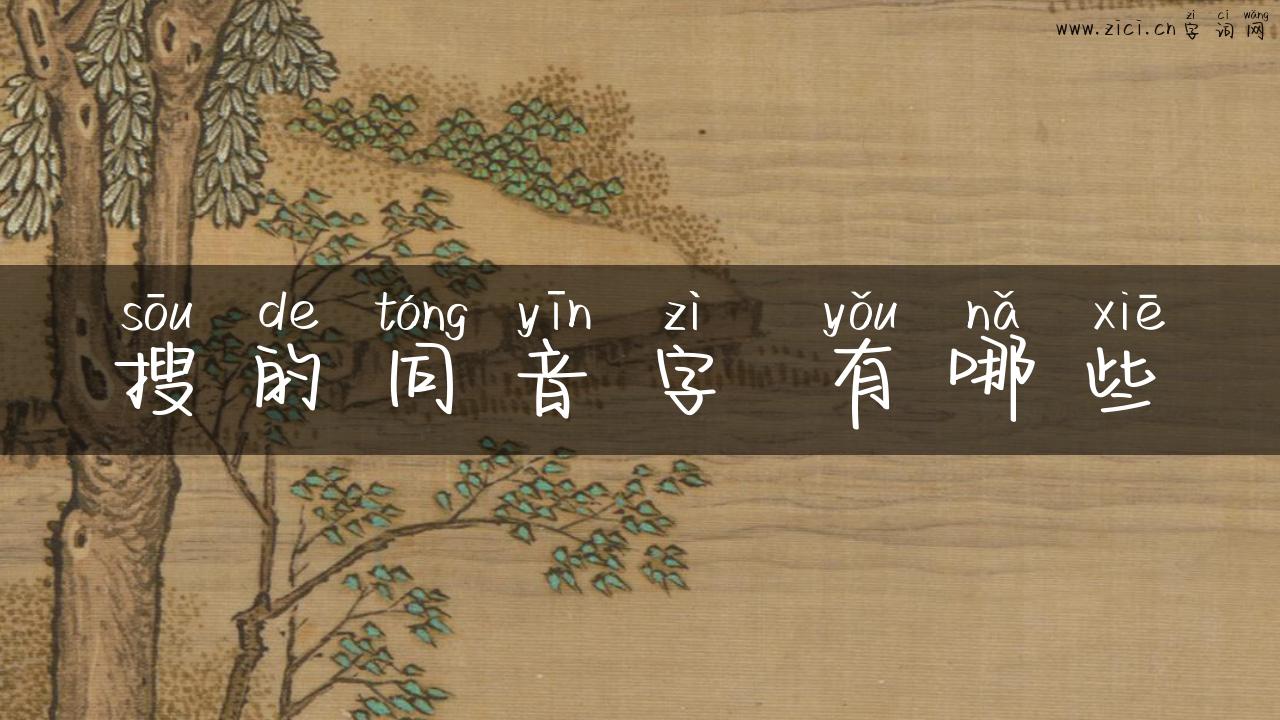 zì cí wǎng
www.zici.cn 字词网
sōu de tóng yīn zì yǒu nǎ xiē
搜的同音字 有哪些